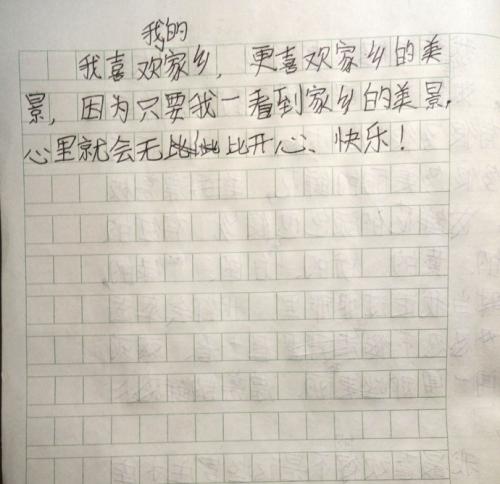 我的
我喜欢家乡，更喜欢家乡的美
景，因为只要我一看到家乡的美景，
心里就会无比开心、快乐！